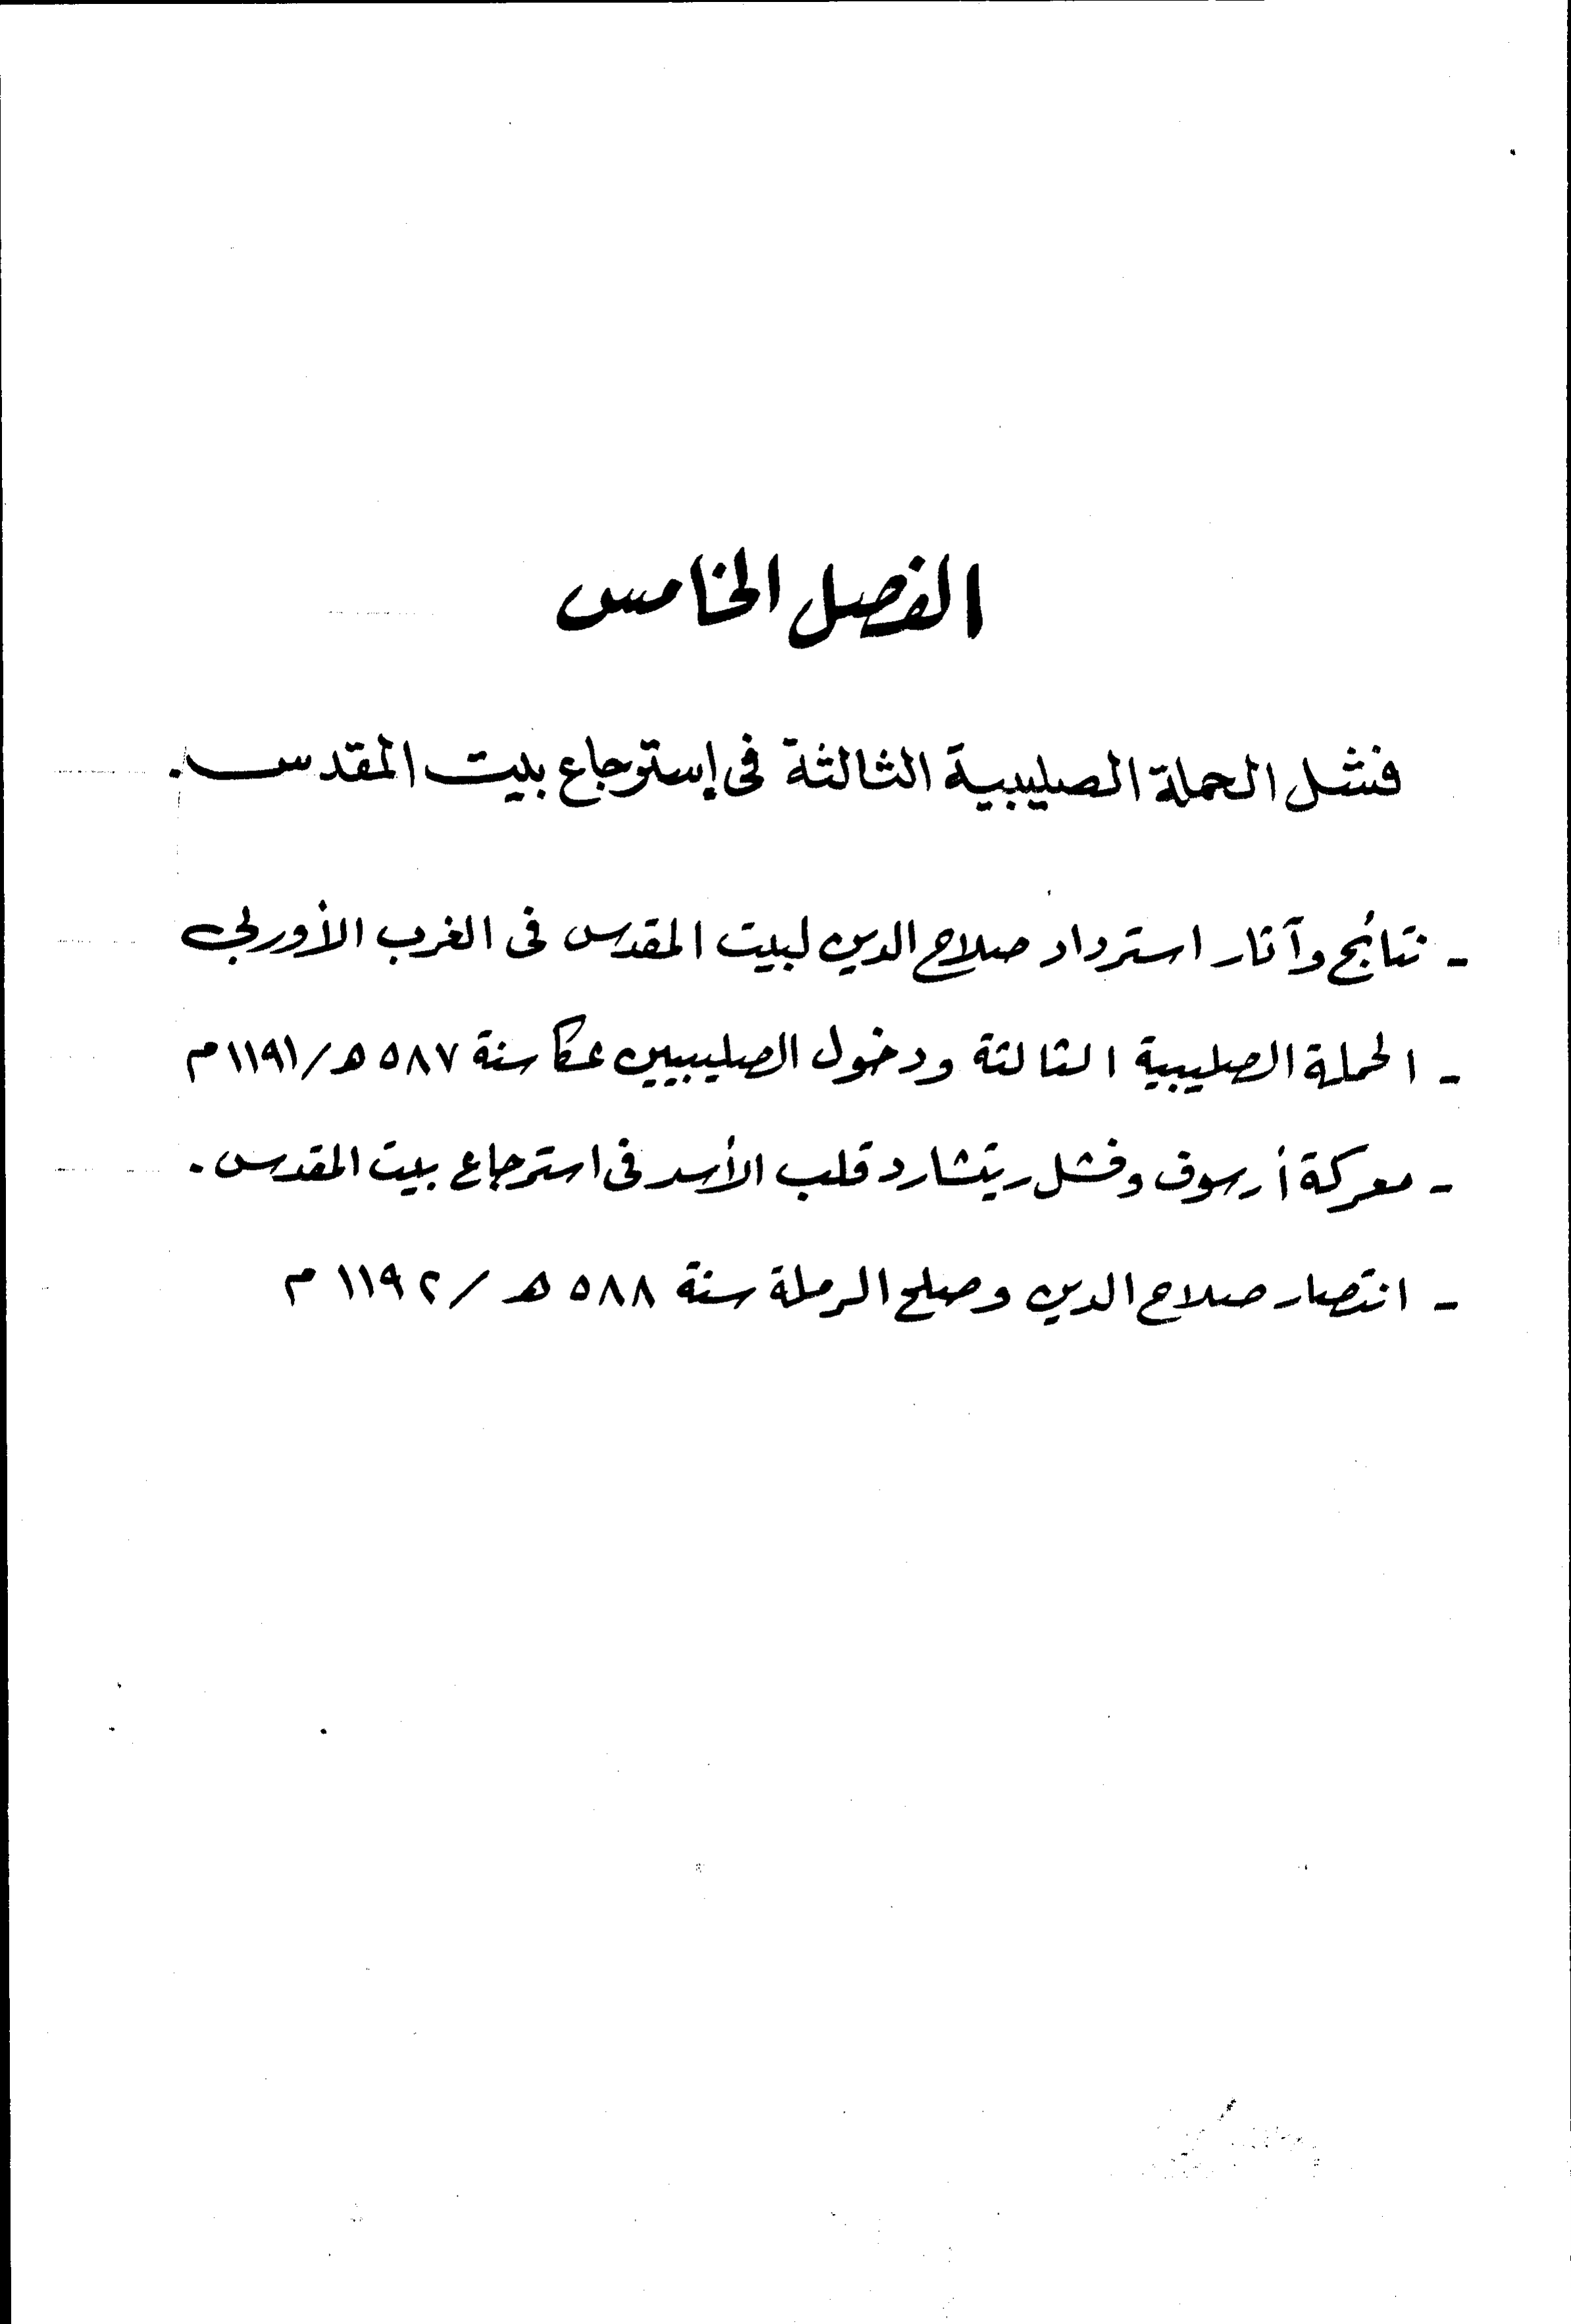 الفصل الخامس
فشل الحملة الصليبية الثالثة فى إسترجاع بيت المقدس.
- نتائج وآثار استرداد صلاح الدين لبيت المقدس فى الغرب الأوربي
- الحملة الصليبية الثالثة ودخول الصليبيين عكا سنة ٥٨٧ هـ/١١٩١م
- معركة أرسوف وفشل ريتشارد قلب الأسد فى استرجاع بيت المقدس.
- انتصار صلاح الدين وصلح الرملة سنة ٥٨٨ هـ / ١١٩٢ م